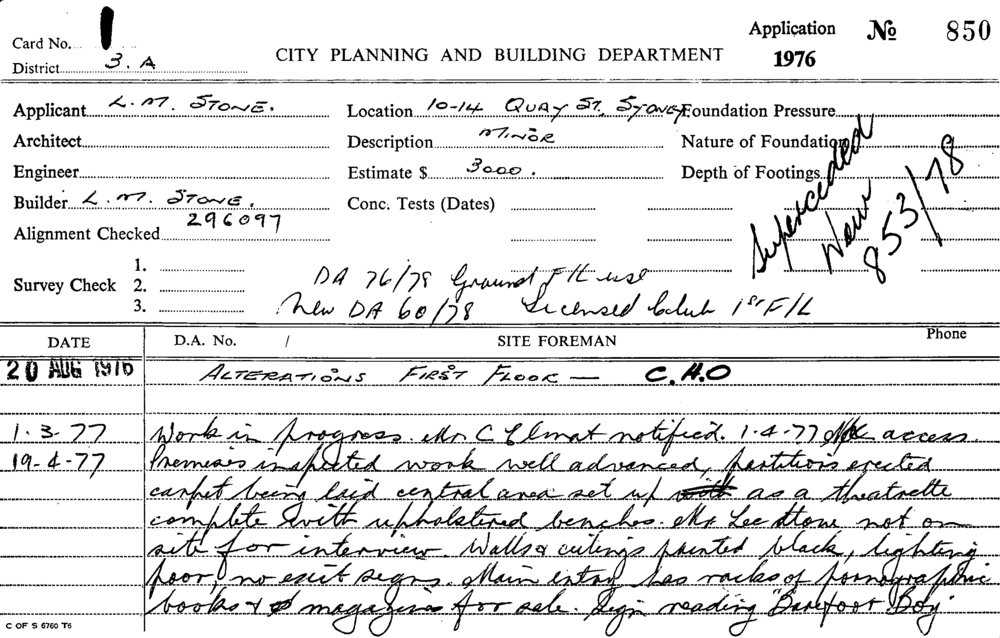 Application № 850
Card No. 1 CITY PLANNING AND BUILDING DEPARTMENT 1976
District 3. A
Applicant L. M. STONE. Location 10-14 QUAY ST. SYDNEY Foundation Pressure
Architect Description MINOR Nature of Foundation
Engineer Estimate $ 3000. Depth of Footings
Builder L. M. STONE. Conc. Tests (Dates)
296097
Alignment Checked
Superceded
New
853/78
Survey Check 1.
2. DA 76/78 Ground F/L use
3. New DA 60/78 Licensed Club 1st F/L
DATE D.A. No. / SITE FOREMAN Phone
20 AUG 1976 ALTERATIONS FIRST FLOOR — C.H.O
1-3-77 Work in progress. Mr C notified. 1-4-77 access.
19-4-77 Premises inspected work well advanced, partitions erected
carpet being laid central area set up as a theatrette
complete with upholstered benches. Mr Lee Stone not on
site for interview. Walls & ceilings painted black, lighting
poor, no exit signs. Main entry has racks of pornographic
books & magazines for sale. Sign reading "Barefoot Boy"
C OF S 6760 T6